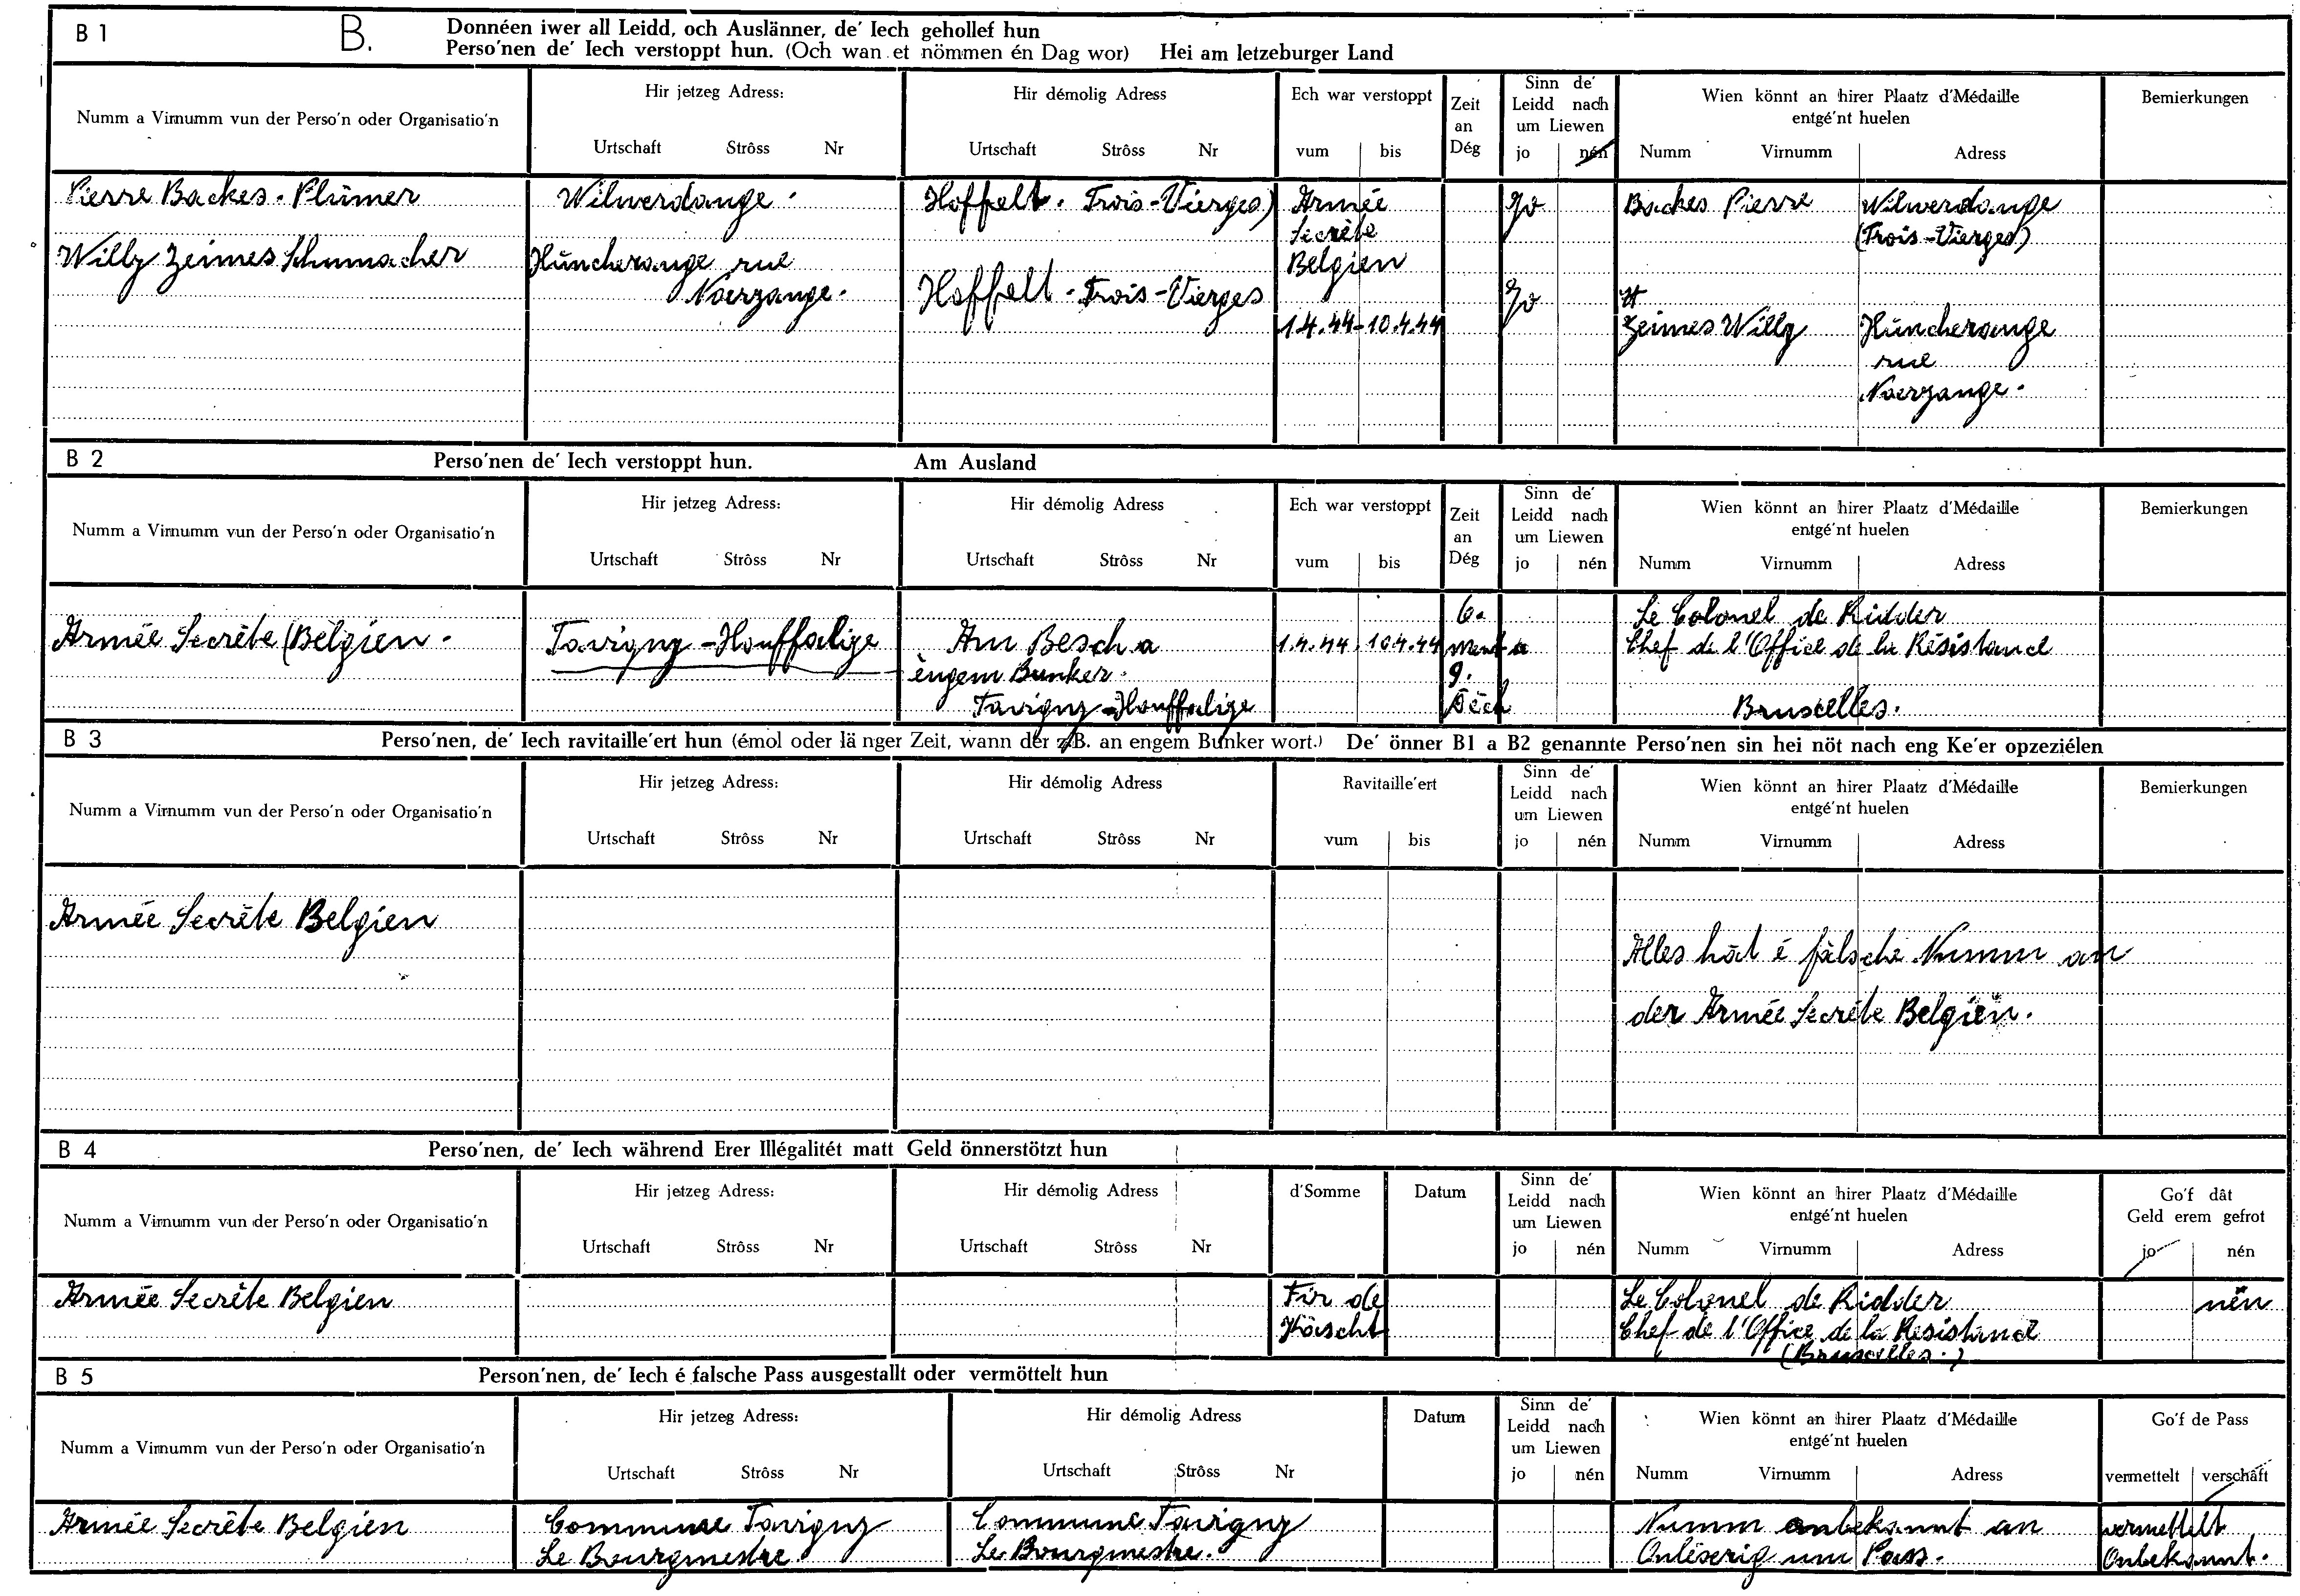 B 1 B. Donnéen iwer all Leidd, och Auslänner, de' Iech gehollef hun
Perso'nen de' Iech verstoppt hun. (Och wan et nömmen én Dag wor) Hei am letzeburger Land
Numm a Virnumm vun der Perso'n oder Organisatio'n
Hir jetzeg Adress:
Urtschaft Strôss Nr
Hir démolig Adress
Urtschaft Strôss Nr
Ech war verstoppt
vum bis
Zeit
an
Dég
Sinn de'
Leidd nach
um Liewen
jo nén
Wien könnt an hirer Plaatz d'Médaille
entgé'nt huelen
Numm Virnumm Adress
Bemierkungen
Pierre Backes. Plümer Wilwerdange. Hoffelt. Trois-Vierges) Armée jo Backes Pierre Wilwerdange
Secrète (Trois-Vierges)
Willy Zeimes Schumacher Hüncherange rue Belgien
Noerzange. Hoffelt. Trois-Vierges jo
1.4.44-10.4.44 Zeimes Willy Hüncherange
rue
Noerzange.
B 2 Perso'nen de' Iech verstoppt hun. Am Ausland
Numm a Virnumm vun der Perso'n oder Organisatio'n
Hir jetzeg Adress:
Urtschaft Strôss Nr
Hir démolig Adress
Urtschaft Strôss Nr
Ech war verstoppt
vum bis
Zeit
an
Dég
Sinn de'
Leidd nach
um Liewen
jo nén
Wien könnt an hirer Plaatz d'Médaille
entgé'nt huelen
Numm Virnumm Adress
Bemierkungen
6. Le Colonel de Ridder
Armée Secrète (Belgien. Tavigny-Houffalige Am Besch a 1.4.44. 10.4.44 Chef de l'Office de la Résistance
éngem Bunker. 9.
Tavigny-Houffalige Dèch Bruxelles.
B 3 Perso'nen, de' Iech ravitaille'ert hun (émol oder länger Zeit, wann der z.B. an engem Bunker wort.) De' önner B1 a B2 genannte Perso'nen sin hei nöt nach eng Ke'er opzeziélen
Numm a Virnumm vun der Perso'n oder Organisatio'n
Hir jetzeg Adress:
Urtschaft Strôss Nr
Hir démolig Adress
Urtschaft Strôss Nr
Ravitaille'ert
vum bis
Sinn de'
Leidd nach
um Liewen
jo nén
Wien könnt an hirer Plaatz d'Médaille
entgé'nt huelen
Numm Virnumm Adress
Bemierkungen
Armée Secrète Belgien
Alles hât é fâlsche Numm an
der Armée Secrète Belgien.
B 4 Perso'nen, de' Iech während Erer Illégalitét matt Geld önnerstötzt hun
Numm a Virnumm vun der Perso'n oder Organisatio'n
Hir jetzeg Adress:
Urtschaft Strôss Nr
Hir démolig Adress
Urtschaft Strôss Nr
d'Somme
Datum
Sinn de'
Leidd nach
um Liewen
jo nén
Wien könnt an hirer Plaatz d'Médaille
entgé'nt huelen
Numm Virnumm Adress
Go'f dât
Geld erem gefrot
jo nén
Armée Secrète Belgien Fir de Le Colonel de Ridder nén
Köscht Chef de l'Office de la Resistance
(Bruxelles.)
B 5 Person'nen, de' Iech é falsche Pass ausgestallt oder vermöttelt hun
Numm a Virnumm vun der Perso'n oder Organisatio'n
Hir jetzeg Adress:
Urtschaft Strôss Nr
Hir démolig Adress
Urtschaft Strôss Nr
Datum
Sinn de'
Leidd nach
um Liewen
jo nén
Wien könnt an hirer Plaatz d'Médaille
entgé'nt huelen
Numm Virnumm Adress
Go'f de Pass
vermettelt verschâft
Armée Secrète Belgien Commune Tavigny Commune Tavigny Numm onbekannt an vermettelt
Le Bourgmestre. Le Bourgmestre. Onléserig um Pass. Onbekannt.